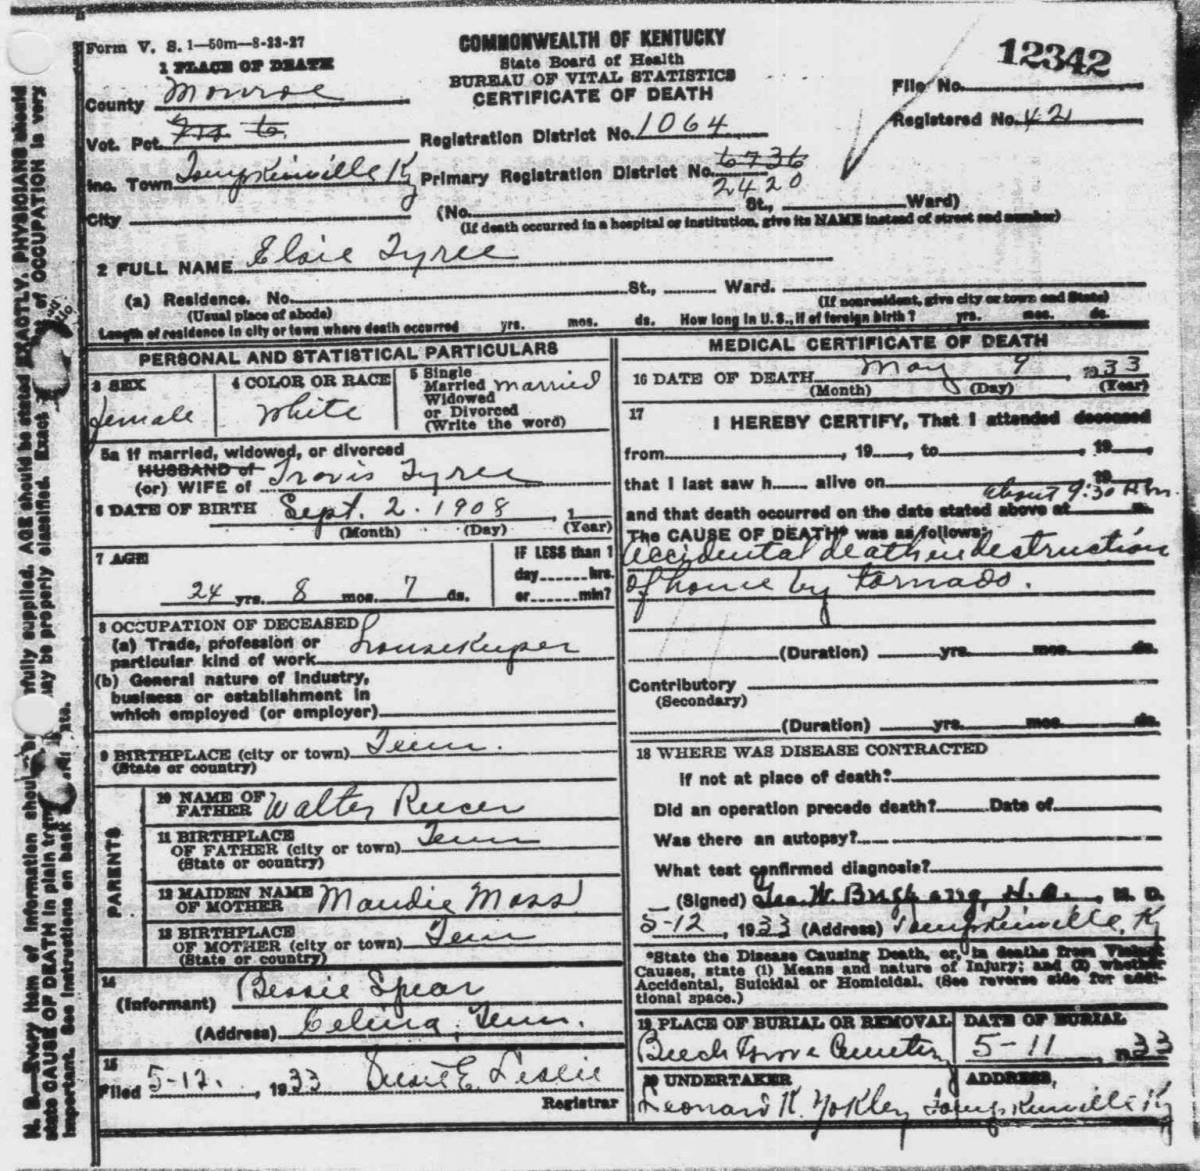 Form V. S. 1—50m—8-23-27
COMMONWEALTH OF KENTUCKY
State Board of Health
BUREAU OF VITAL STATISTICS
CERTIFICATE OF DEATH
12342
File No.
Registered No. 42
1 PLACE OF DEATH
County Monroe
Vot. Pct.
Registration District No. 1064
Inc. Town Tompkinsville Ky
Primary Registration District No. 6736
2420
City
(No. St., Ward)
(If death occurred in a hospital or institution, give its NAME instead of street and number)
2 FULL NAME Elsie Tyree
(a) Residence. No. St., Ward.
(Usual place of abode)
(If nonresident, give city or town and State)
Length of residence in city or town where death occurred yrs. mos. ds. How long in U. S., if of foreign birth? yrs. mos. ds.
PERSONAL AND STATISTICAL PARTICULARS
3 SEX
female
4 COLOR OR RACE
White
5 Single
Married
Widowed
or Divorced
(Write the word)
married
5a If married, widowed, or divorced
HUSBAND of
(or) WIFE of Travis Tyree
6 DATE OF BIRTH Sept. 2. 1908, 1
(Month) (Day) (Year)
7 AGE
24 yrs. 8 mos. 7 ds.
IF LESS than 1
day hrs.
or min?
8 OCCUPATION OF DECEASED
(a) Trade, profession or
particular kind of work Housekeeper
(b) General nature of Industry,
business or establishment in
which employed (or employer)
9 BIRTHPLACE (city or town) Tenn.
(State or country)
PARENTS
10 NAME OF
FATHER Walter Reecer
11 BIRTHPLACE
OF FATHER (city or town) Tenn
(State or country)
12 MAIDEN NAME
OF MOTHER Maudie Moss
13 BIRTHPLACE
OF MOTHER (city or town) Tenn
(State or country)
14
(Informant) Bessie Spear
(Address) Celina, Tenn.
15
Filed 5-12., 1933 E. Leslie
Registrar
MEDICAL CERTIFICATE OF DEATH
16 DATE OF DEATH May 9, 1933
(Month) (Day) (Year)
17
I HEREBY CERTIFY, That I attended deceased
from , 19 , to , 19 ,
that I last saw h alive on , 19
about 9:30 P.m.
and that death occurred on the date stated above at m.
The CAUSE OF DEATH* was as follows:
accidental death in destruction
of home by tornado.
(Duration) yrs. mos. ds.
Contributory
(Secondary)
(Duration) yrs. mos. ds.
18 WHERE WAS DISEASE CONTRACTED
If not at place of death?
Did an operation precede death? Date of
Was there an autopsy?
What test confirmed diagnosis?
(Signed) Geo. W. , M. D.
5-12, 1933 (Address) Tompkinsville, Ky
*State the Disease Causing Death, or, in deaths from Violent
Causes, state (1) Means and nature of Injury; and (2) whether
Accidental, Suicidal or Homicidal. (See reverse side for addi-
tional space.)
19 PLACE OF BURIAL OR REMOVAL
Beech Grove Cemetery
DATE OF BURIAL
5-11, 1933
20 UNDERTAKER
Leonard K. Yokley
ADDRESS
Tompkinsville Ky
N. B.—Every item of information should be carefully supplied. AGE should be stated EXACTLY. PHYSICIANS should
state CAUSE OF DEATH in plain terms may be properly classified. Exact of OCCUPATION is very
important. See instructions on back